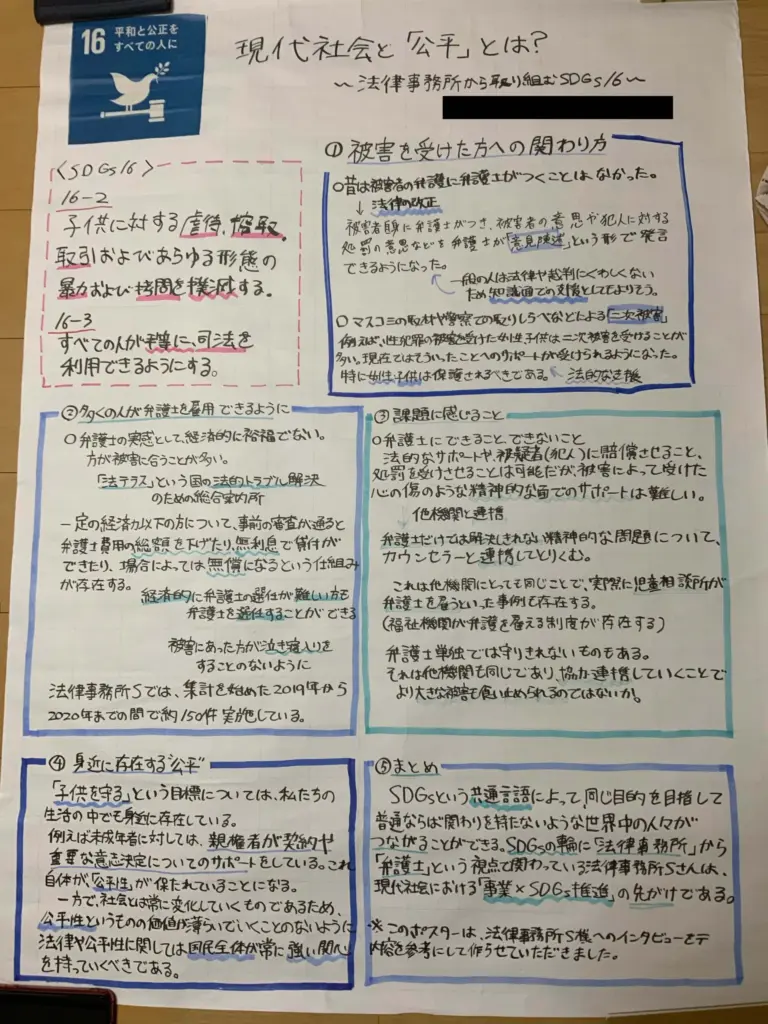 16 平和と公正を
すべての人に
現代社会と「公平」とは?
〜法律事務所から取り組むSDGs16〜
〈SDGs16〉
16-2
子供に対する虐待、搾取、
取引およびあらゆる形態の
暴力および拷問を撲滅する。
16-3
すべての人が平等に、司法を
利用できるようにする。
① 被害を受けた方への関わり方
○昔は被害者の弁護に弁護士がつくことはなかった。
↓法律の改正
被害者自身に弁護士がつき、被害者の意思や犯人に対する
処罰の意思などを弁護士が「意見陳述」という形で発言
できるようになった。
一般の人は法律や裁判にくわしくない
ため知識面での支援としてもよりそう。
○マスコミの取材や警察での取りしらべなどによる「二次被害」
例えば、性犯罪の被害を受けた女性子供は二次被害を受けることが
多い。現在ではそういったことへのサポートが受けられるようになった。
特に女性子供は保護されるべきである。 法的な支援
②多くの人が弁護士を雇用できるように
○弁護士の実感として、経済的に裕福でない。
方が被害に合うことが多い。
「法テラス」という国の法的トラブル解決
のための総合案内所
一定の経済力以下の方について、事前の審査が通ると
弁護士費用の総額を下げたり、無利息で貸付が
できたり、場合によっては無償になるという仕組み
が存在する。
経済的に弁護士の選任が難しい方も
弁護士を選任することができる
被害にあった方が泣き寝入りを
することのないように
法律事務所Sでは、集計を始めた2019年から
2020年までの間で約150件実施している。
③課題に感じること
○弁護士にできること、できないこと
法的なサポートや、被疑者(犯人)に賠償させること、
処罰を受けさせることは可能だが、被害によって受けた
心の傷のような精神的な面でのサポートは難しい。
↓他機関と連携
弁護士だけでは解決しきれない精神的な問題について、
カウンセラーと連携してとりくむ。
これは他機関にとっても同じことで、実際に児童相談所が
弁護士を雇うといった事例も存在する。
(福祉機関が弁護を雇える制度が存在する)
弁護士単独では守りきれないものもある。
それは他機関も同じであり、協力連携していくことで
より大きな被害も食い止められるのではないか。
④身近に存在する"公平"
「子供を守る」という目標については、私たちの
生活の中でも身近に存在している。
例えば未成年者に対しては、親権者が契約や
重要な意志決定についてのサポートをしている。これ
自体が、「公平性」が保たれていることになる。
一方で、社会とは常に変化していくものであるため、
公平性というものの価値が薄らいでいくことのないように
法律や公平性に関しては国民全体が常に強い関心
を持っていくべきである。
⑤まとめ
SDGsという共通言語によって、同じ目的を目指して
普通ならば関わりを持たないような世界中の人々が
つながることができる。SDGsの輪に「法律事務所」から
「弁護士」という視点で関わっている法律事務所Sさんは、
現代社会における「事業×SDGs推進」の先がけである。
※このポスターは、法律事務所S様へのインタビューを
内容を参考にして作らせていただきました。